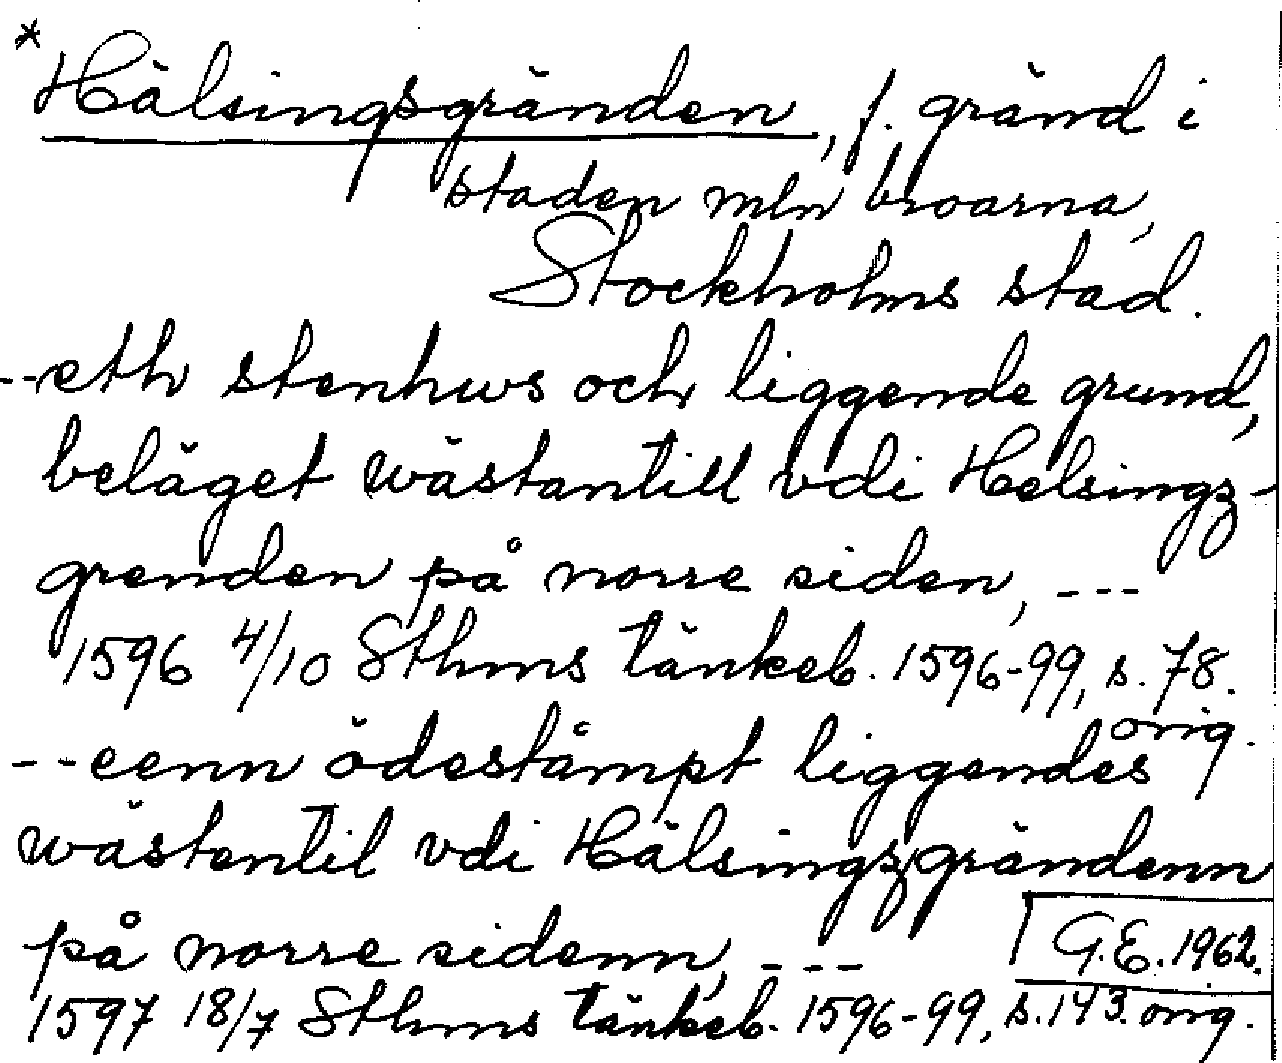 *Hälsingsgränden, f. gränd i
staden mln broarna,
Stockholms stad.
--eth stenhws och liggende grund,
beläget wästantill vdi Helsingz-
grenden på norre siden, ---
1596 4/10 Sthms tänkeb. 1596-99, s. 78.
orig.
--eenn ödestämpt liggendes
wästentil vdi Hälsingzgrändenn
på norre sidenn, ---
G.E. 1962.
1597 18/7 Sthms tänkeb. 1596-99, s. 143. orig.